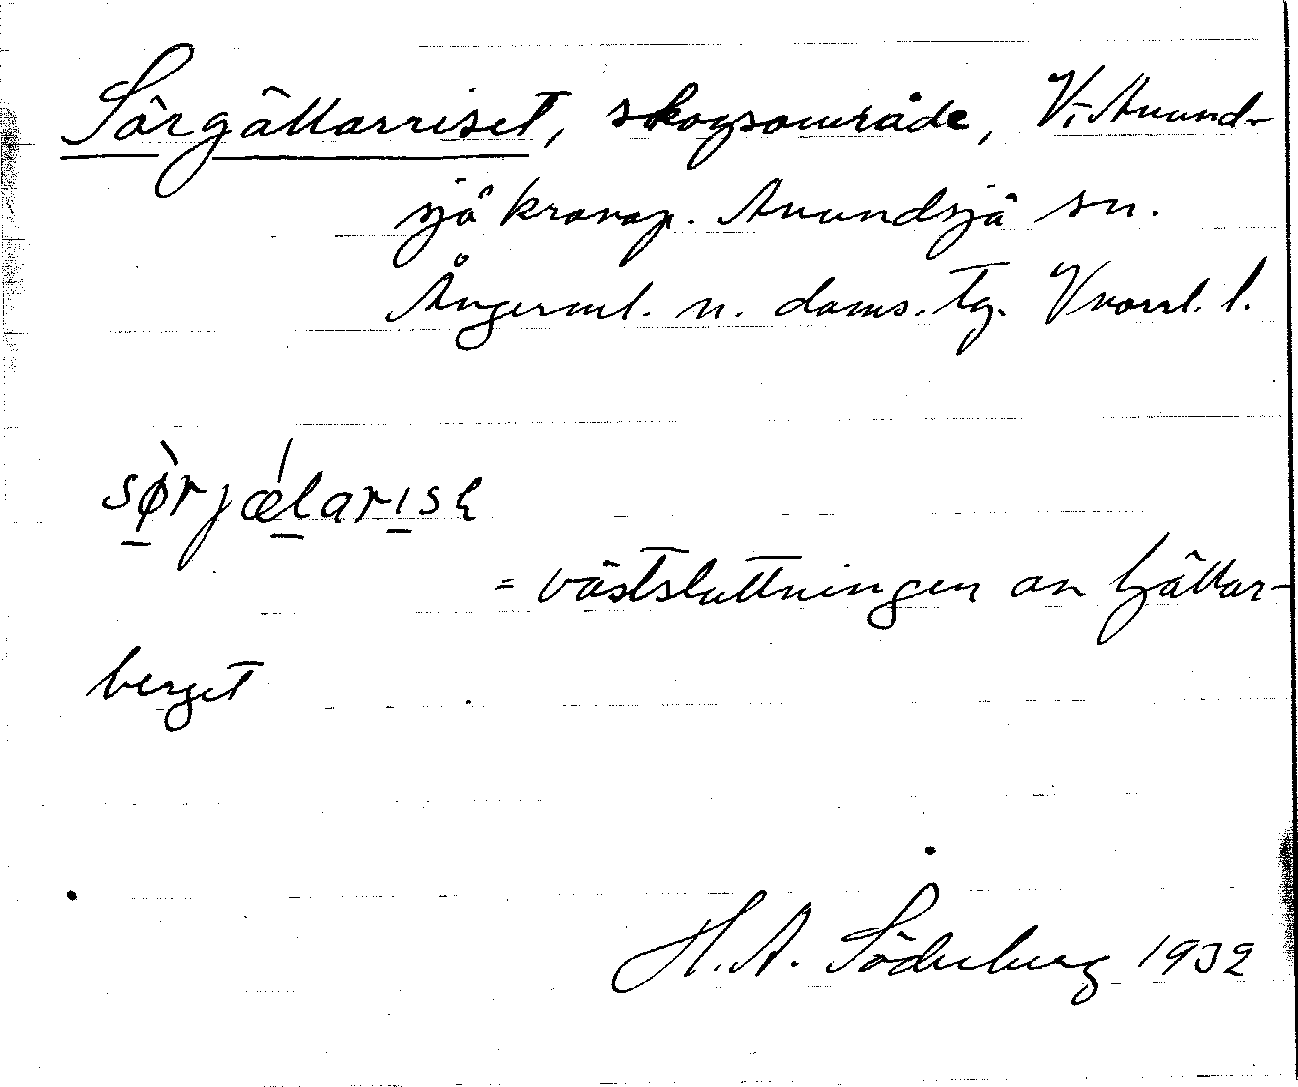 Sörgällarriset, skogsområde, V. Anund-
sjö kronop. Anundsjö sn.
Ångerml. n. doms. tg. Vnorrl. l.
sørjælarisɛ
= västsluttningen av Gällar-
berget
H. A. Söderberg 1932